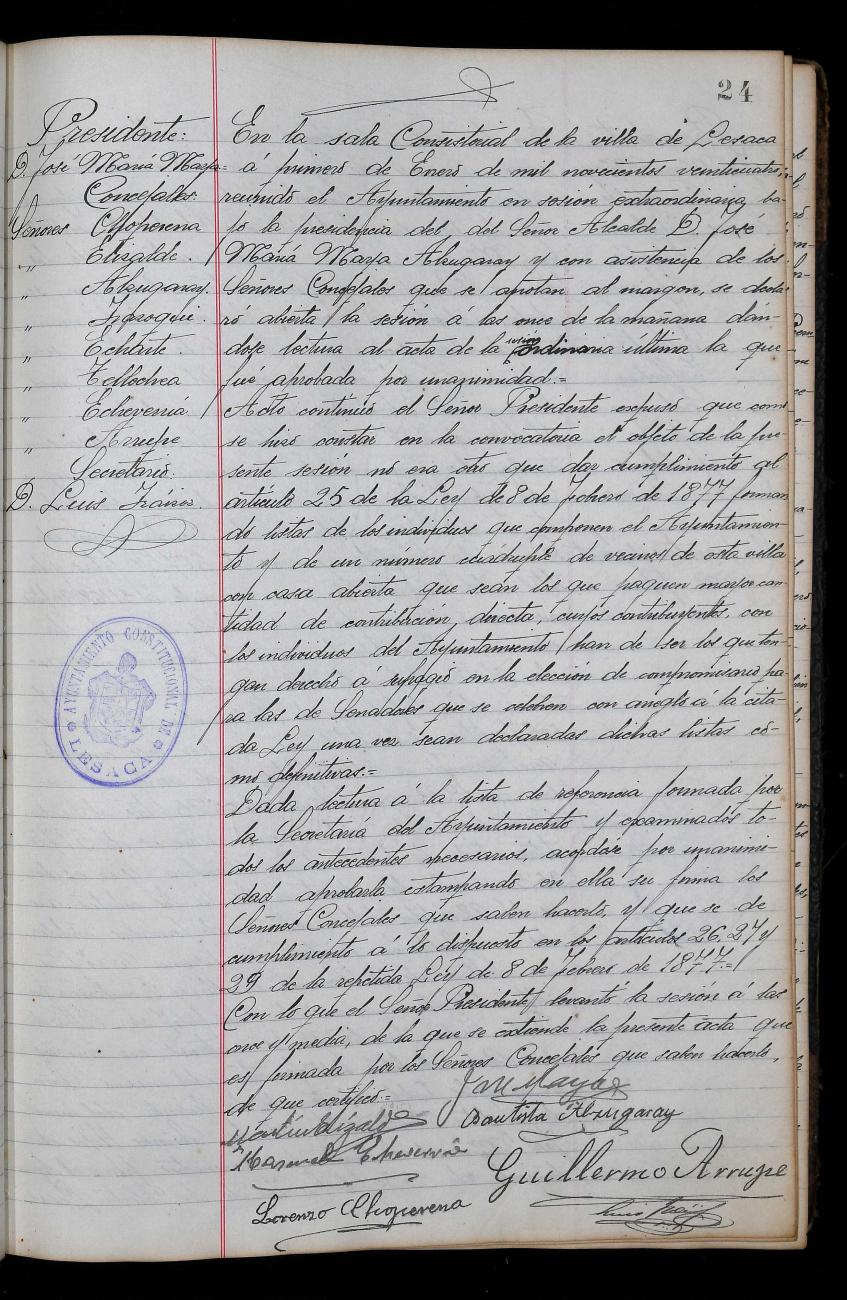 24
Presidente:
D. José María Maya=
Concejales.
Señores Choperena
" Elizalde.
" Alzugaray.
" Igaroqui.
" Echarte.
" Tellechea
" Echeverría
" Arrupe
Secretario.
D. Luis
AYUNTAMIENTO CONSTITUCIONAL DE
LESACA
En la sala Consistorial de la villa de Lesaca
á primero de Enero de mil novecientos veinticuatro,
reunido el Ayuntamiento en sesión extraordinaria ba-
jo la presidencia del del Señor Alcalde D. José
María Maya Alzugaray y con asistencia de los
Señores Concejales que se anotan al margen, se decla
ró abierta la sesion á las once de la mañana dán-
dose lectura al acta de la sesión ordinaria última la que
fué aprobada por unanimidad.=
Acto continuo el Señor Presidente expuso que como
se hizo constar en la convocatoria el objeto de la pre
sente sesión no era otro que dar cumplimiento al
artículo 25 de la Ley de 8 de Febrero de 1877 forman
do listas de los individuos que componen el Ayuntamien-
to y de un número cuadruple de vecinos de esta villa
con casa abierta que sean los que paguen mayor can-
tidad de contribución directa, cuyos contribuyentes, con
los individuos del Ayuntamiento han de ser los que ten-
gan derecho á sufragio en la elección de compromisario pa-
ra las de Senadores que se celeben con arreglo á la cita-
da Ley una vez sean declaradas dichas listas co-
mo definitivas.=
Dada lectura á la lista de referencia formada por
la Secretaría del Ayuntamiento y examinados to-
dos los antecedentes necesarios, acordar por unanimi-
dad aprobarla estampando en ella su firma los
Señores Concejales que saben hacerlo, y que se de
cumplimiento á lo dispuesto en los artículos 26, 27 y
29 de la repetida Ley de 8 de Febrero de 1877.=
Con lo que el Señor Presidente levantó la sesión á las
once y media, de la que se extiende la presente acta que
es firmada por los Señores Concejales que saben hacerlo,
de que certifico.=
José M Maya
Martín Elizalde
Bautista Alzugaray
Manuel Echeverria
Guillermo Arrupe
Lorenzo Choperena
Luis